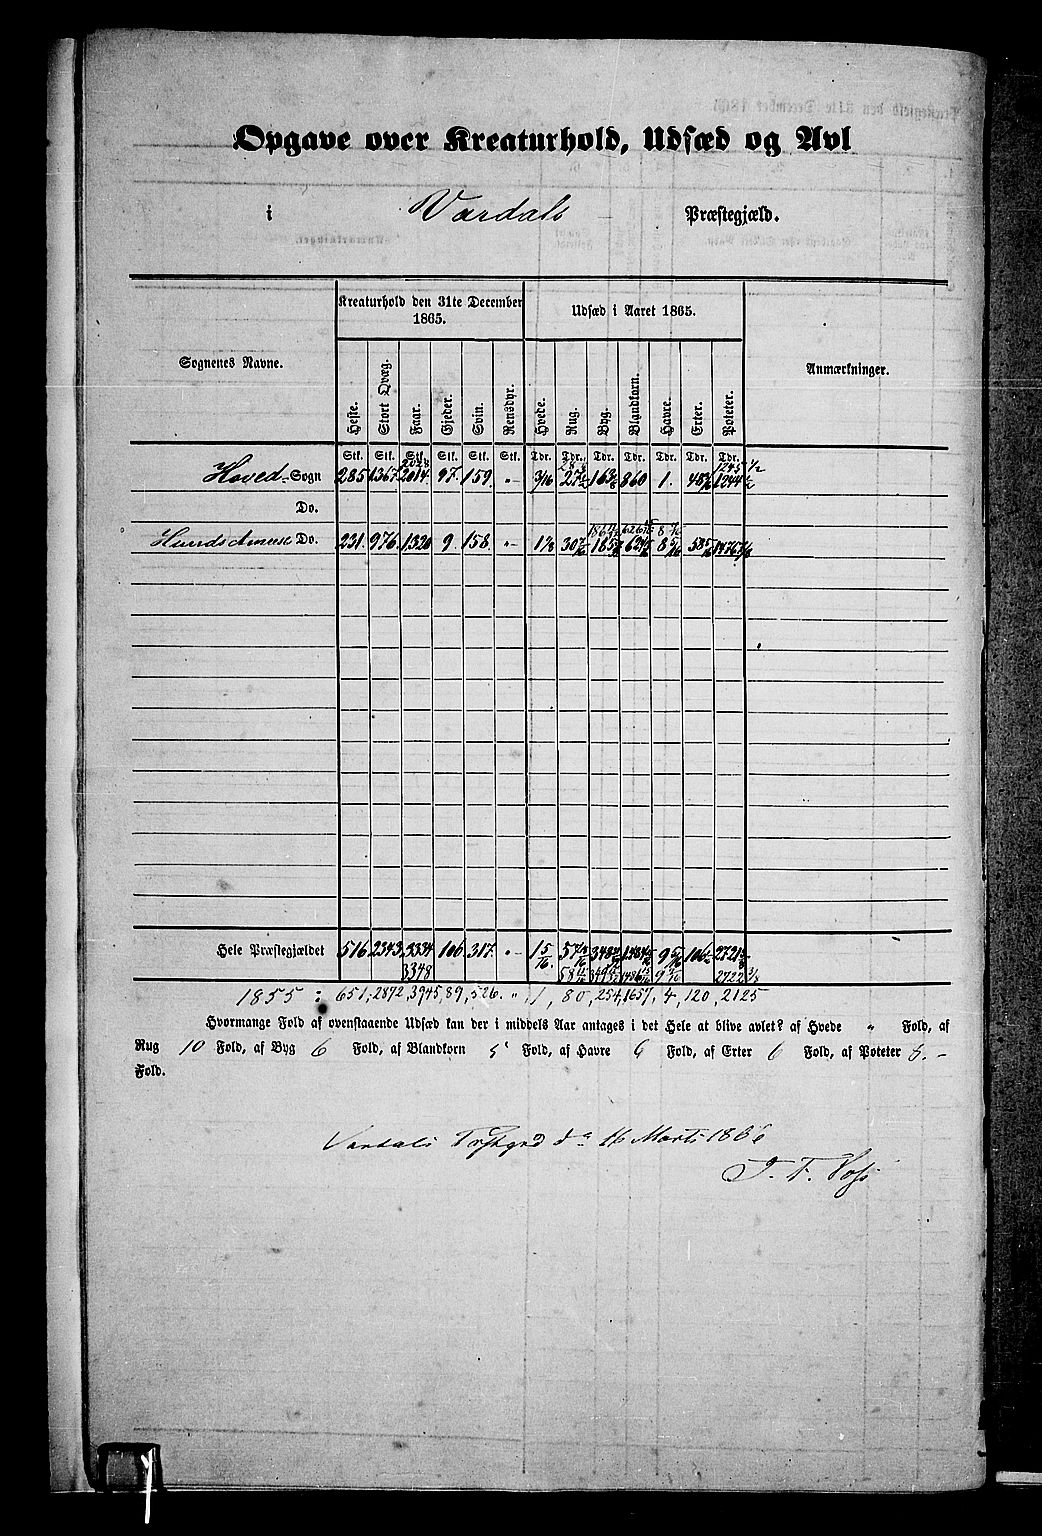 Opgave over Kreaturhold, Udsæd og Avl
i Vardals Præstegjæld.
Sognenes Navne. Kreaturhold den 31te December 1865. Udsæd i Aaret 1865. Anmærkninger.
Heste. Stort Qvæg. Faar. Gjeder. Svin. Rensdyr. Hvede. Rug. Byg. Blandkorn. Havre. Erter. Poteter.
Stk. Stk. Stk. Stk. Stk. Stk. Tdr. Tdr. Tdr. Tdr. Tdr. Tdr. Tdr.
2028 1245 1/2
Hoved- Sogn 285 1367 2014 97 159 „ 3/16 27 1/2 860 1. 1244 1/2
Do.
Do. 231. 976. 1320 9. 158. „ 1 1/8 8 5/16
Hele Præstegjældet 516 2343 3334 106 317 „ 1 5/16 9 5/16
3348 2722 3/8
1855 : 651, 2872, 3945, 89, 526. „ 1, 80, 254, 1657, 4, 120, 2125
Hvormange Fold af ovenstaaende Udsæd kan der i middels Aar antages i det Hele at blive avlet? af Hvede „ Fold, af
Rug 10 Fold, af Byg 6 Fold, af Blandkorn 5 Fold, af Havre 6 Fold, af Erter 6 Fold, af Poteter 5. -
Fold.
Vardals Præstgrd d. 16 Marts 1866
J. F. Voss